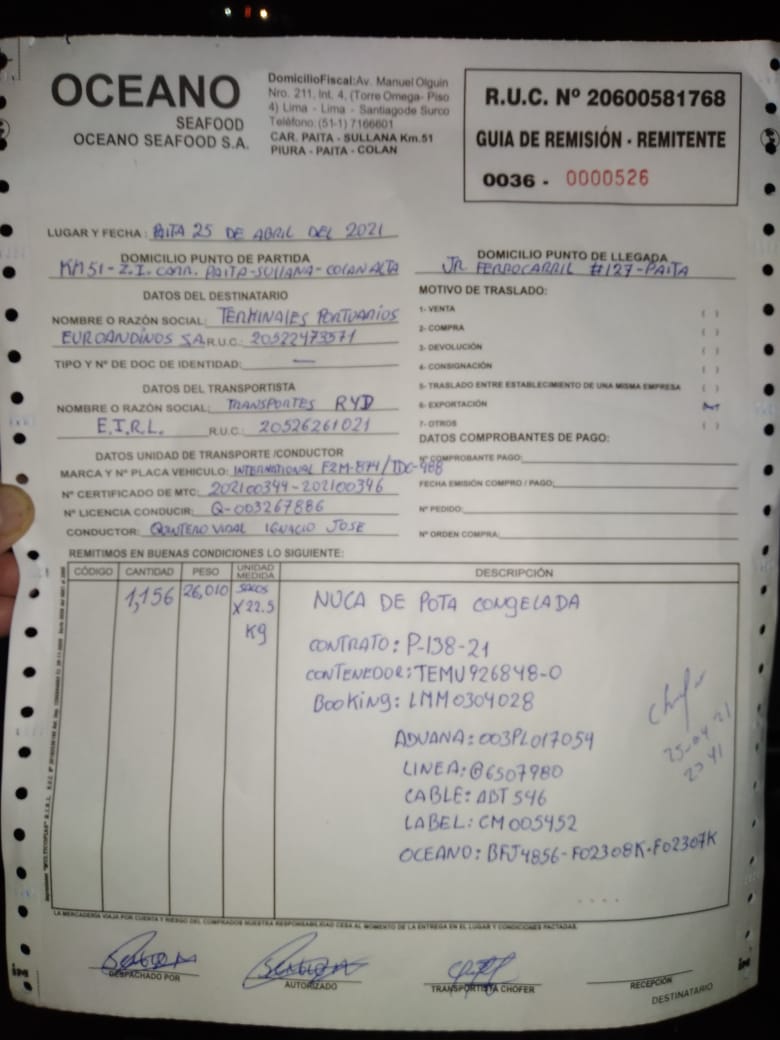 OCEANO
SEAFOOD
OCEANO SEAFOOD S.A.
DomicilioFiscal:Av. Manuel Olguin
Nro. 211, Int. 4, (Torre Omega- Piso
4) Lima - Lima - Santiagode Surco
Teléfono:(51-1) 7166601
CAR. PAITA - SULLANA Km.51
PIURA - PAITA - COLAN
R.U.C. Nº 20600581768
GUIA DE REMISIÓN - REMITENTE
0036 - 0000526
LUGAR Y FECHA : PAITA 25 DE ABRIL DEL 2021
DOMICILIO PUNTO DE PARTIDA
KM 51 - Z.I. CARR. PAITA-SULLANA-COLAN ALTA
DOMICILIO PUNTO DE LLEGADA
JR FERROCARRIL #127-PAITA
DATOS DEL DESTINATARIO
NOMBRE O RAZÓN SOCIAL: TERMINALES PORTUARIOS
EUROANDINOS S.A. R.U.C.: 20522473571
TIPO Y Nº DE DOC DE IDENTIDAD: —
MOTIVO DE TRASLADO:
1- VENTA ( )
2- COMPRA ( )
3- DEVOLUCIÓN ( )
4- CONSIGNACIÓN ( )
5- TRASLADO ENTRE ESTABLECIMIENTO DE UNA MISMA EMPRESA ( )
6- EXPORTACIÓN
7- OTROS ( )
DATOS DEL TRANSPORTISTA
NOMBRE O RAZÓN SOCIAL: TRANSPORTES RYD
E.I.R.L. R.U.C.: 20526261021
DATOS UNIDAD DE TRANSPORTE /CONDUCTOR
MARCA Y Nº PLACA VEHICULO: INTERNATIONAL F2M-874/TDC-988
Nº CERTIFICADO DE MTC: 202100344-202100346
Nº LICENCIA CONDUCIR: Q-003267886
CONDUCTOR: QUINTERO VIDAL IGNACIO JOSE
DATOS COMPROBANTES DE PAGO:
Nº COMPROBANTE PAGO:
FECHA EMISIÓN COMPRO / PAGO:
Nº PEDIDO:
Nº ORDEN COMPRA:
REMITIMOS EN BUENAS CONDICIONES LO SIGUIENTE:
CÓDIGO CANTIDAD PESO UNIDAD MEDIDA DESCRIPCIÓN
1,156 26,010 SACOS X 22.5 Kg NUCA DE POTA CONGELADA
CONTRATO: P-138-21
CONTENEDOR: TEMU926848-0
BOOKING: LMM0304028
ADUANA: 003PL017054
LINEA: @6507980
CABLE: ADT 546
LABEL: CM005452
OCEANO: BFJ4856-F02308K-F02307K
Chofer
25-04-21
23 41
LA MERCADERÍA VIAJA POR CUENTA Y RIESGO DEL COMPRADOS NUESTRA RESPONSABILIDAD CESA AL MOMENTO DE LA ENTREGA EN EL LUGAR Y CONDICIONES PACTADAS.
DESPACHADO POR
AUTORIZADO
TRANSPORTISTA CHOFER
RECEPCIÓN
DESTINATARIO